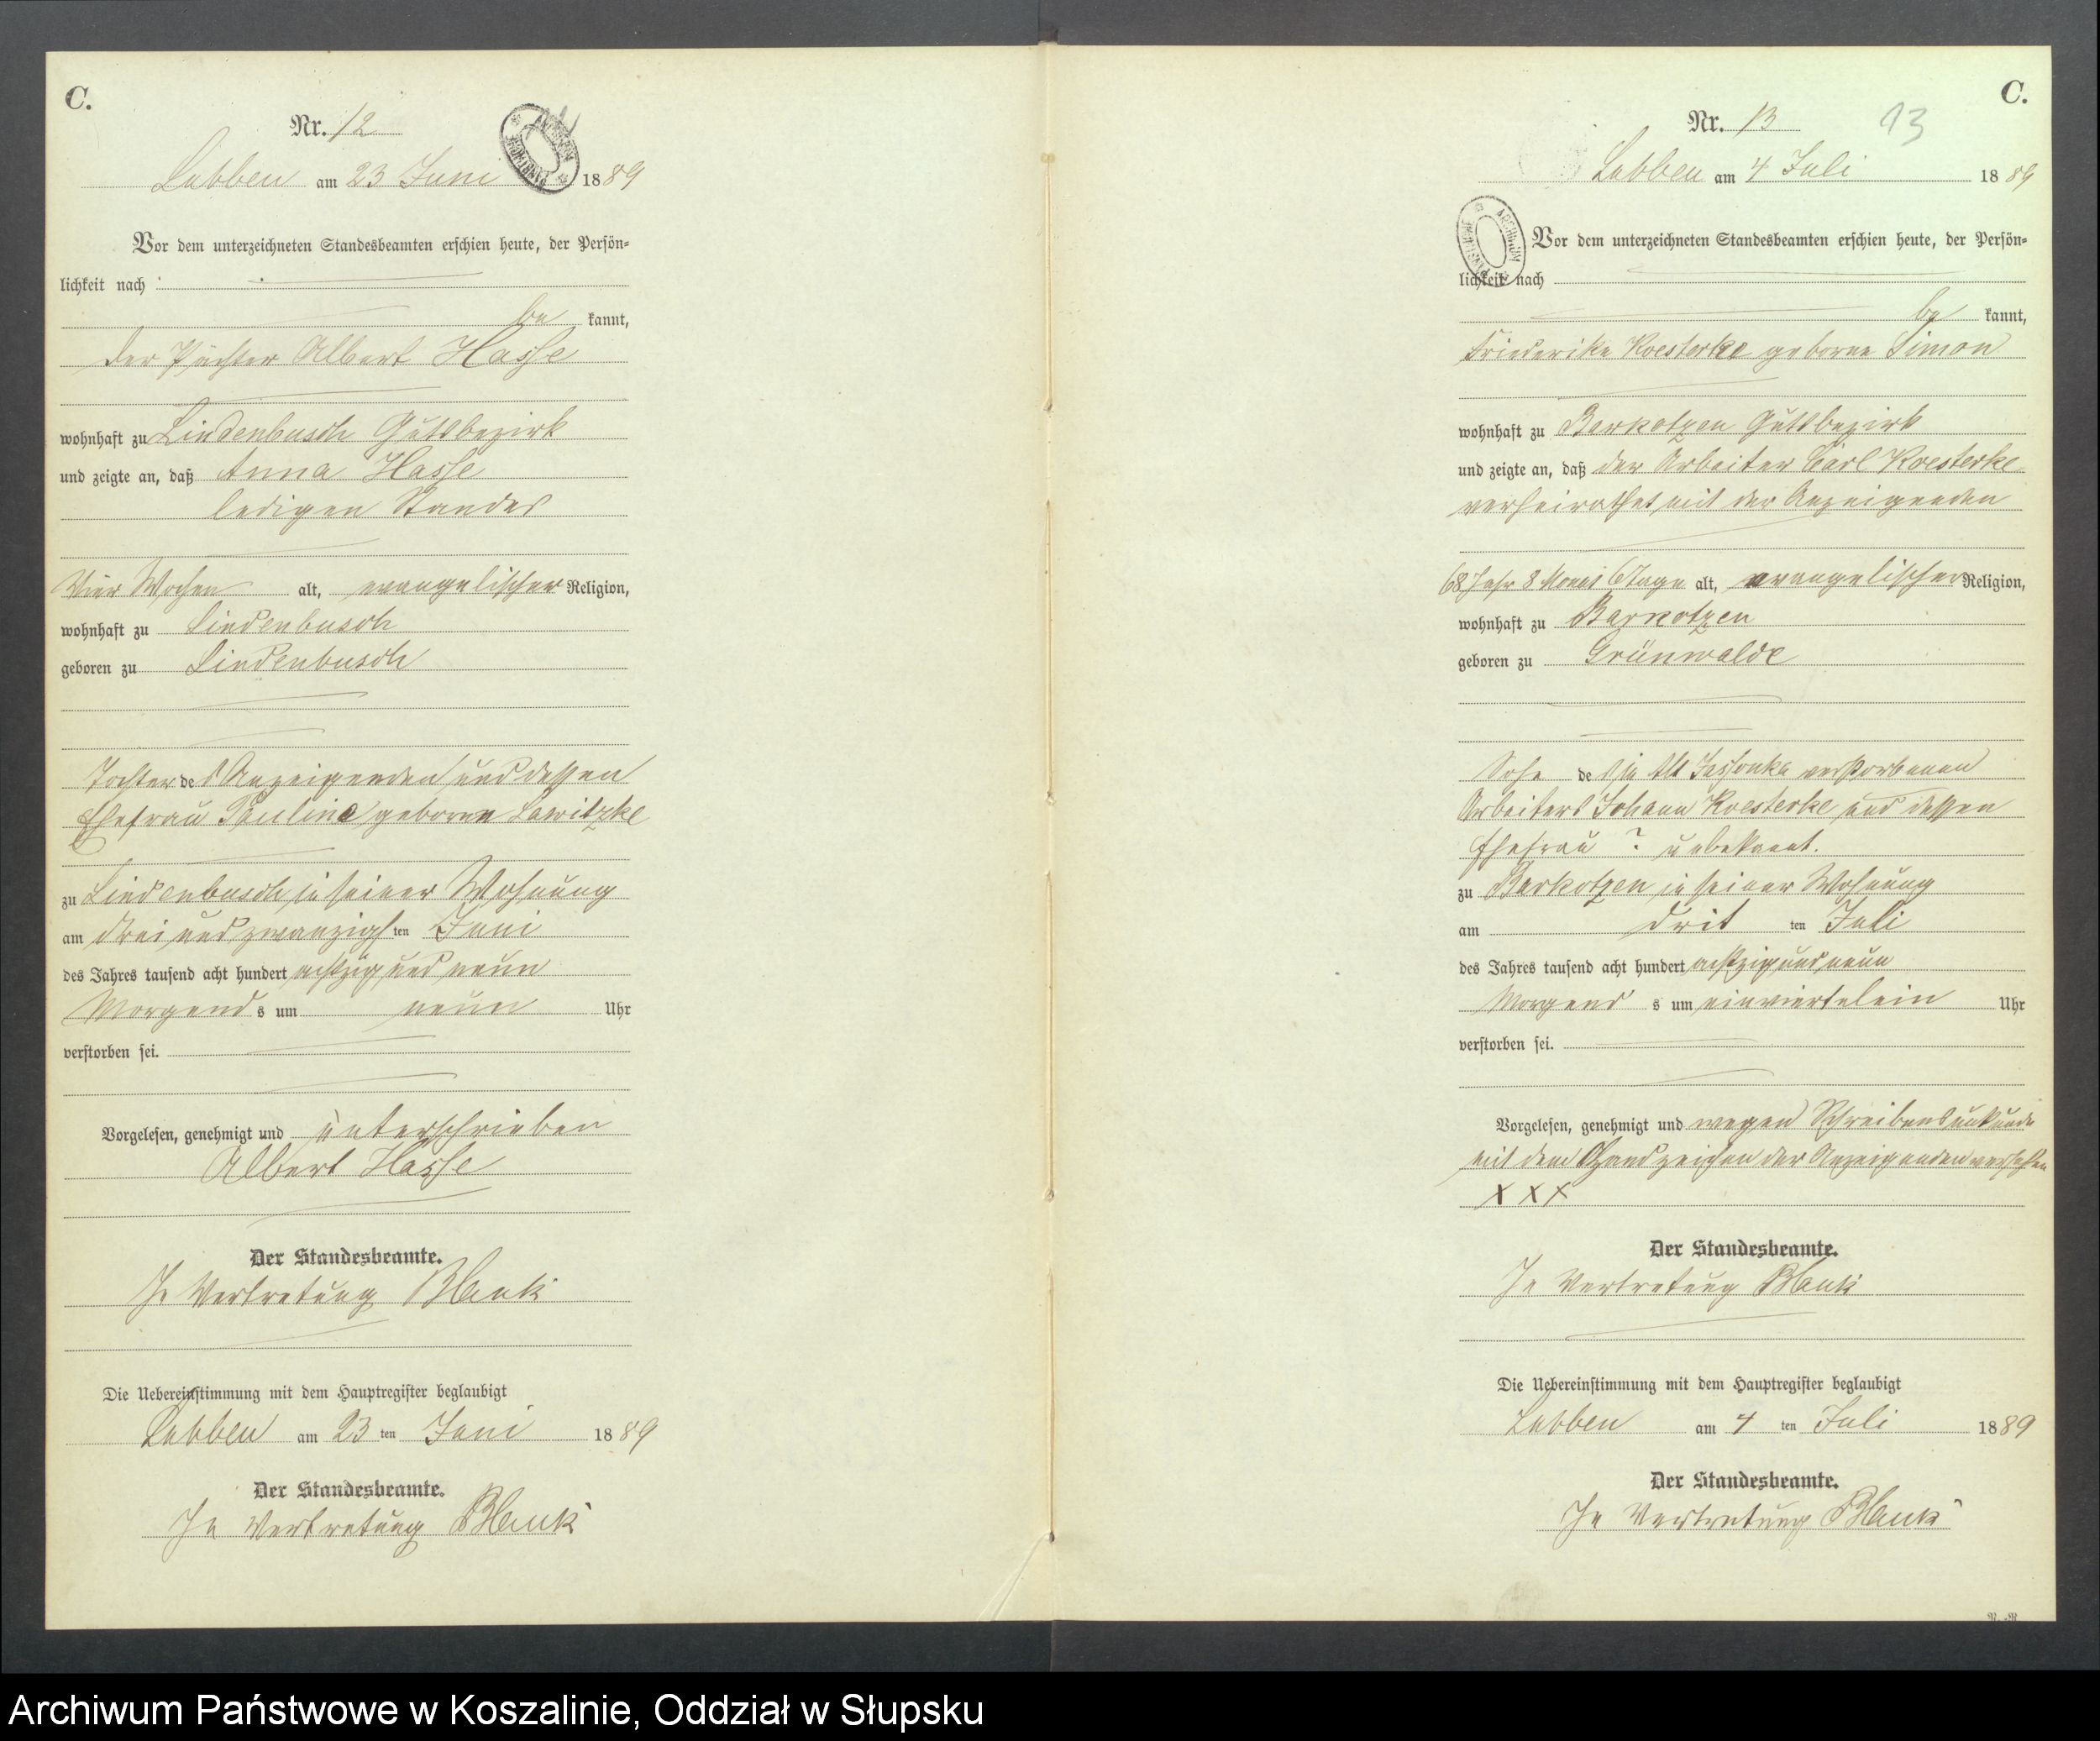 C.
Nr. 12
Labben am 23 Juni 1889
Vor dem unterzeichneten Standesbeamten erschien heute, der Persön-
lichkeit nach
be kannt,
der Pächter Albert Hasse
wohnhaft zu Lindenbusch Gutsbezirk
und zeigte an, daß Anna Hasse
ledigen Standes
Vier Wochen alt, evangelischer Religion,
wohnhaft zu Lindenbusch
geboren zu Lindenbusch
Tochter des Anzeigenden und dessen
Ehefrau Pauline geborne Lawitzke
zu Lindenbusch in seiner Wohnung
am drei und zwanzigsten Juni
des Jahres tausend acht hundert achtzig und neun
Morgends um neun Uhr
verstorben sei.
Vorgelesen, genehmigt und unterschrieben
Albert Hasse
Der Standesbeamte.
In Vertretung Blank
Die Uebereinstimmung mit dem Hauptregister beglaubigt
Labben am 23 ten Juni 1889
Der Standesbeamte.
In Vertretung Blank
C.
Nr. 13
13
Labben am 4 Juli 1889
Vor dem unterzeichneten Standesbeamten erschien heute, der Persön-
lichkeit nach
be kannt,
Friederike Koesterke geborne Simon
wohnhaft zu Barkotzen Gutsbezirk
und zeigte an, daß der Arbeiter Carl Koesterke
verheirathet mit der Anzeigenden
68 Jahr 8 Monat 6 Tage alt, evangelischer Religion,
wohnhaft zu Barkotzen
geboren zu Grünwalde
Sohn des in Alt verstorbenen
Arbeiters Johann Koesterke und dessen
Ehefrau ? unbekannt.
zu Barkotzen in seiner Wohnung
am drit ten Juli
des Jahres tausend acht hundert achtzig und neun
Morgends um einviertelein Uhr
verstorben sei.
Vorgelesen, genehmigt und wegen Schreibensunkunde
mit dem Handzeichen der Anzeigenden versehen
X X X
Der Standesbeamte.
In Vertretung Blank
Die Uebereinstimmung mit dem Hauptregister beglaubigt
Labben am 4 ten Juli 1889
Der Standesbeamte.
In Vertretung Blank
Archiwum Państwowe w Koszalinie, Oddział w Słupsku